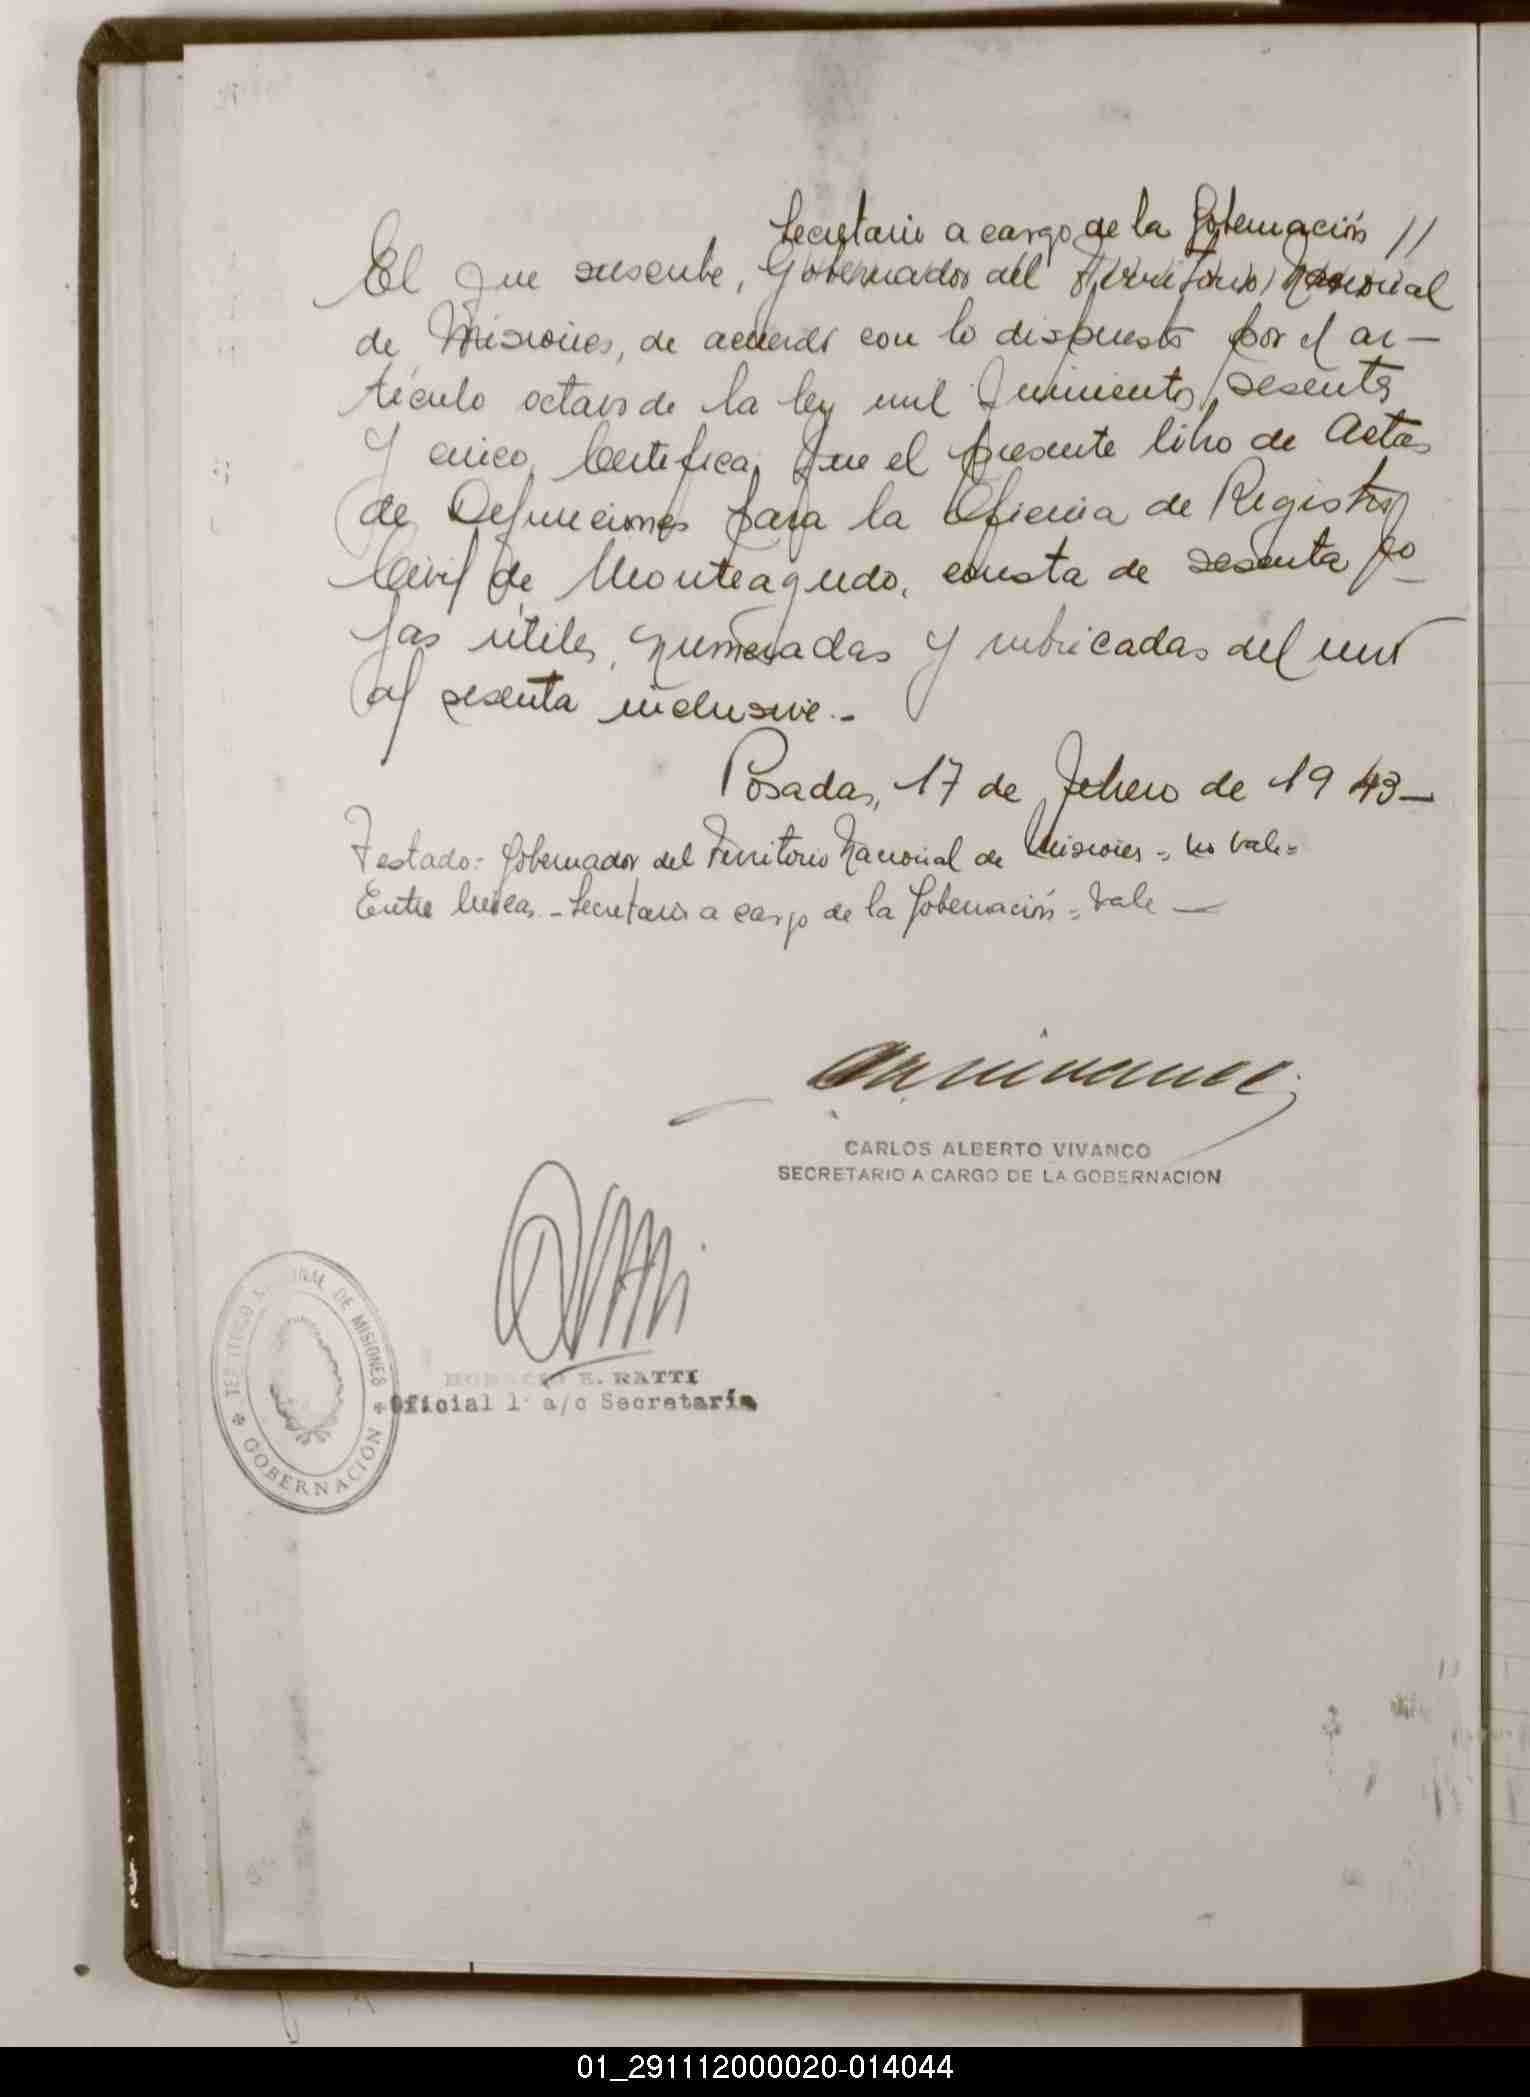 Secretario a cargo de la Gobernación //
El que suscribe, Gobernador del Territorio Nacional
de Misiones, de acuerdo con lo dispuesto por el ar-
tículo octavo de la ley mil quinientos sesenta
y cinco, Certifica que el presente libro de Actas
de Defunciones para la Oficina de Registro
Civil de Monteagudo, consta de sesenta fo-
jas útiles, numeradas y rubricadas del uno
al sesenta inclusive.-
Posadas, 17 de Febrero de 1943-
Testado: Gobernador del Territorio Nacional de Misiones = no vale=
Entre líneas - Secretario a cargo de la Gobernación = Vale —
CARLOS ALBERTO VIVANCO
SECRETARIO A CARGO DE LA GOBERNACION
HORACIO E. RATTI
Oficial 1º a/c Secretaría
TERRITORIO NACIONAL DE MISIONES
GOBERNACIÓN
01_291112000020-014044